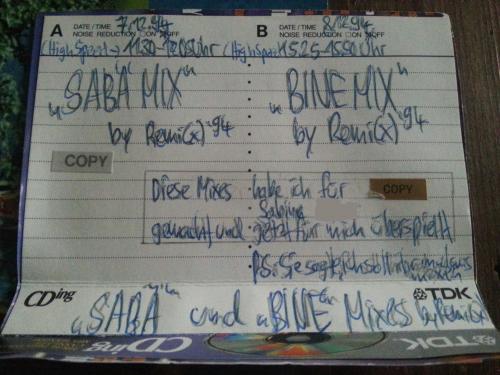 A DATE / TIME 7.12.94
NOISE REDUCTION ON OFF
(High Speed → 11.30-12.05 Uhr
"SABA MIX"
by Remi(x) '94
COPY
B DATE / TIME 8.12.94
NOISE REDUCTION ON OFF
(High Speed 15.25-15.50 Uhr
"BINE MIX"
by Remi(x) '94
COPY
Diese Mixes habe ich für
Sabina
gemacht und jetzt für mich überspielt
PS: Sie sagte, ich soll
CDing TDK
"SABA" und "BINE" Mixes by Remi(x)
CDing TDK